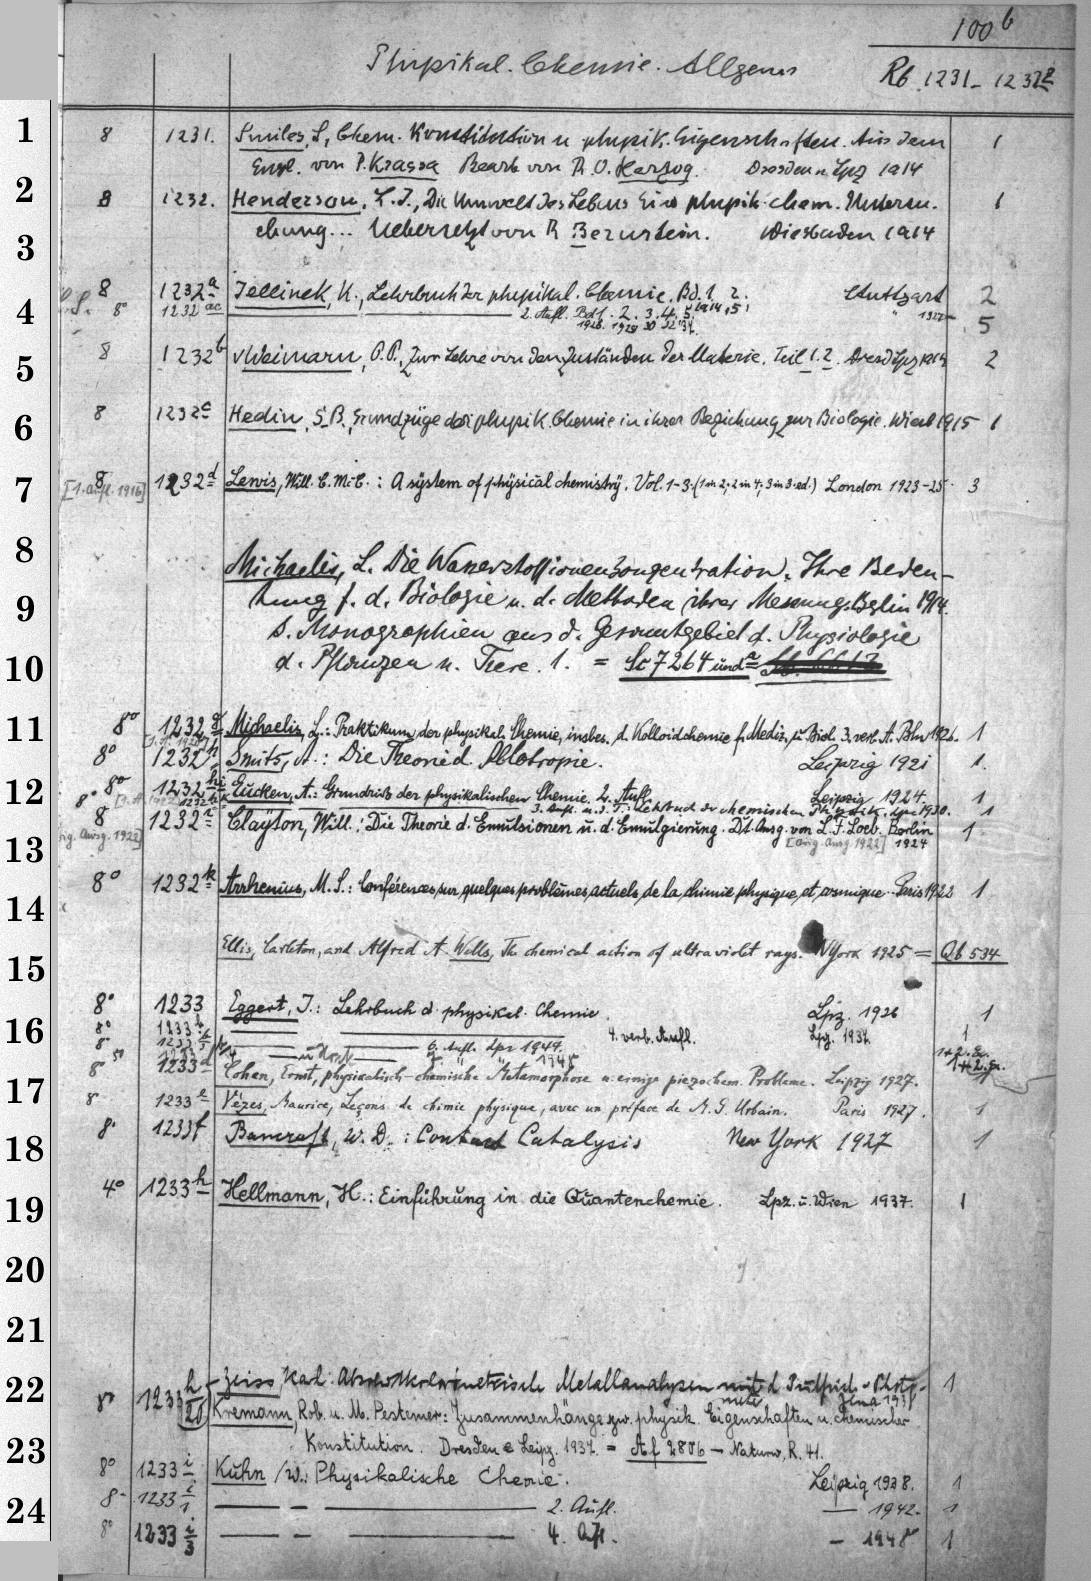 100b
Physikal. Chemie. Allgem
Rb 1231-1232
1 8 1231. Smiles, S, Chem. Konstitution u physik. Eigenschaften. Aus dem 1
Engl. von P. Krassa Bearb von R. O. Herzog. Dresden u Lpz 1914
2 8 1232. Henderson, L. J., Die Umwelt des Lebens Eine physik-chem. Untersu. 1
3 chung... Uebersetzt von R Bernstein. Wiesbaden 1914
8 1232a Jellinek, K., Lehrbuch der physikal. Chemie. Bd. 1. 2. Stuttgart 2
4 8° 1232ac 2. Aufl. Bd 1. 2. 3. 4. 5. 1914,15; 5
1928. 1928 30 32 37.
5 8 1232b v Weimarn, P. P., Zur Lehre von den Zuständen der Materie. Teil 1. 2. Dresd Lpz 1914 2
6 8 1232c Hedin, S. B., Grundzüge der physik. Chemie in ihrer Beziehung zur Biologie. Wiesb 1915 1
7 8 [1. Aufl. 1916] 1232d Lewis, Will. C. McC. : A system of physical chemistry. Vol. 1-3. (1 in 2; 2 in 4; 3 in 3. ed.) London 1923-25. 3
8 Michaelis, L. Die Wasserstoffionenkonzentration. Ihre Bedeu-
9 tung f. d. Biologie u. d. Methoden ihrer Messung. Berlin 1914.
s. Monographien aus d. Gesamtgebiet d. Physiologie
10 d. Pflanzen u. Tiere. 1. = Sc 7264 und a
11 8° 1232g Michaelis, L.: Praktikum der physikal. Chemie, insbes. d. Kolloidchemie f. Mediz. u. Biol. 3. verb. A. Bln 1926. 1
8° 1232h Smits, A.: Die Theorie d. Allotropie. Leipzig 1921 1.
12 8° 1232hi Eucken, A.: Grundriß der physikalischen Chemie. 2. Aufl. Leipzig 1924. 1
8° 3. Aufl. u. d. T.: Lehrbuch der chemischen Physik. Lpz 1930. 1
8 1232i Clayton, Will.: Die Theorie d. Emulsionen u. d. Emulgierung. Dt. Ausg. von L. F. Loeb. Berlin 1
13 [Orig. Ausg. 1922] [Orig. Ausg. 1922] 1924
14 8° 1232k Arrhenius, M. S.: Conférences sur quelques problèmes actuels de la chimie physique et cosmique. Paris 1922 1
15 Ellis, Carleton, and Alfred A. Wells, The chemical action of ultraviolet rays. N York 1925 = Qb 534
8° 1233 Eggert, J.: Lehrbuch d. physikal. Chemie. Lpz. 1926 1
16 8° 1233 4. verb. Aufl. Lpz. 1937. 1
8° 1233 6. Aufl. Lpz 1944.
7. " " 1948
17 8° 1233d Cohen, Ernst, physikalisch-chemische Metamorphose u. einige piezochem. Probleme. Leipzig 1927.
8° 1233e Vèzes, Maurice, Leçons de chimie physique, avec un préface de M. G. Urbain. Paris 1927. 1
18 8° 1233f Bancroft, W. D. : Contact Catalysis New York 1927 1
19 4° 1233h Hellmann, H.: Einführung in die Quantenchemie. Lpz. u. Wien 1937. 1
20
21
22 8° 1233 h/20 Zeiss, Karl. Absolutkolorimetrische Metallanalysen mit d. Pulfrich-Phot. 1
Jena 1937
Kremann, Rob. u. M. Pestemer: Zusammenhänge zw. physik. Eigenschaften u. chemischer
23 Konstitution. Dresden & Leipz. 1937. = Af 2806 - Naturw. R. 41.
8° 1233i Kuhn, W.: Physikalische Chemie. Leipzig 1938. 1
24 8° 1233 i/1 — — — 2. Aufl. — 1942. 1
8° 1233 i/3 — — — 4. Aufl. — 1948 1